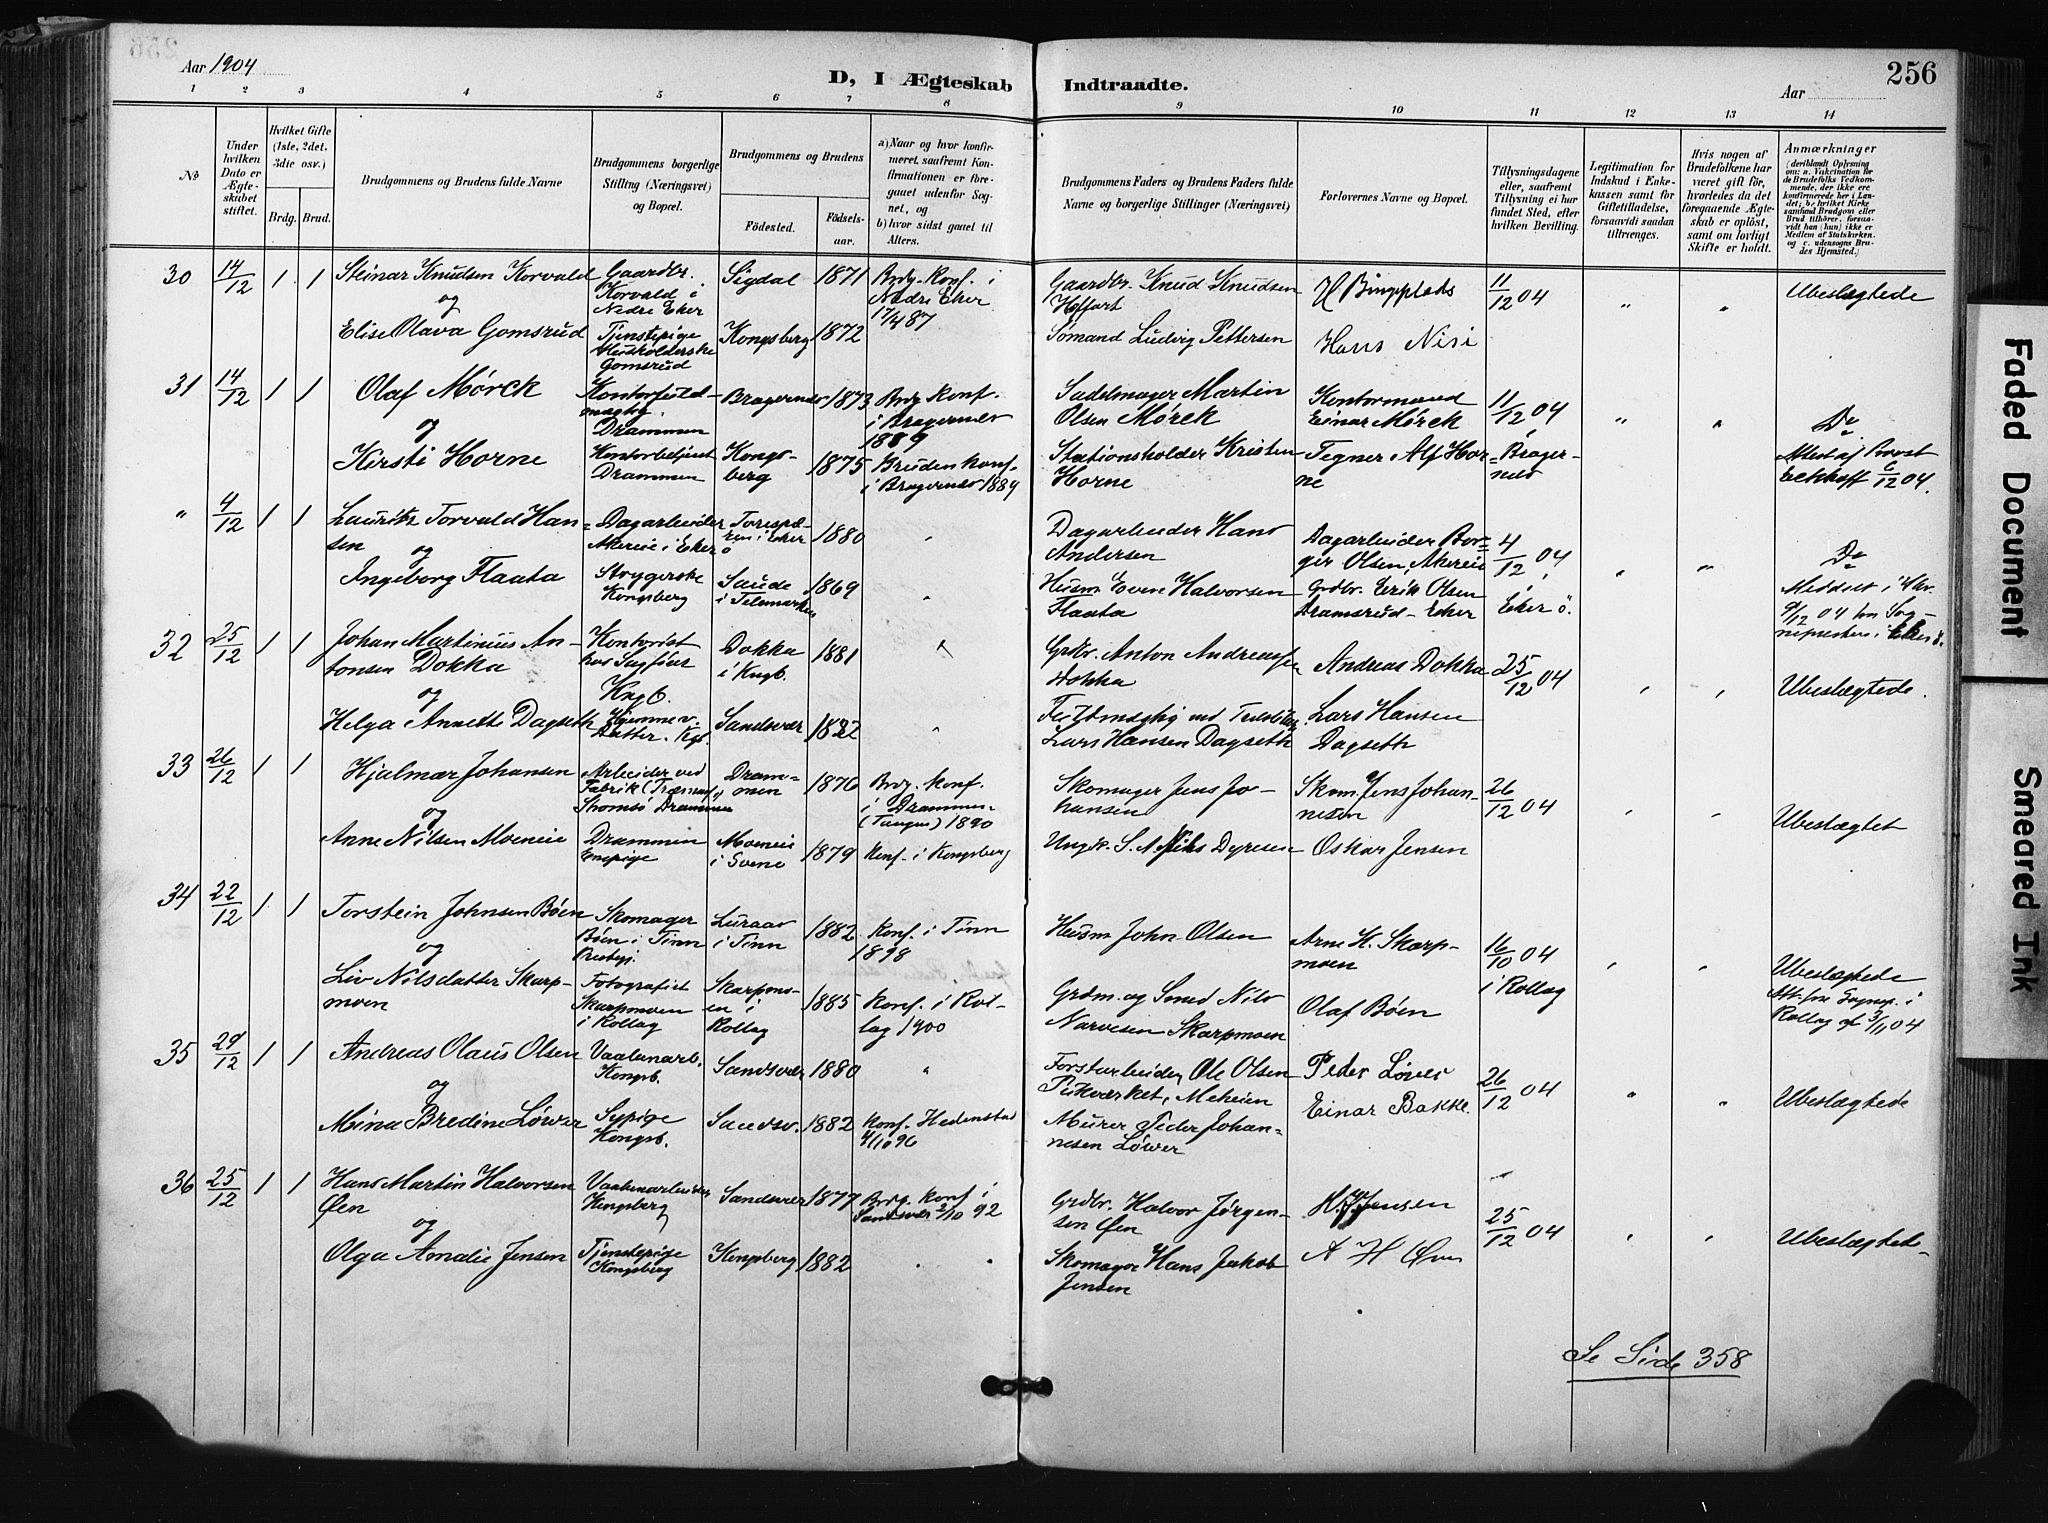 256
Aar 1904
D, I Ægteskab Indtraadte.
Aar
1 2 3 4 5 6 7 8 9 10 11 12 13 14
No
Under hvilken Dato er Ægteskabet stiftet.
Hvilket Gifte (1ste, 2det, 3die osv.)
Brdg. Brud.
Brudgommens og Brudens fulde Navne
Brudgommens borgerlige Stilling (Næringsvei) og Bopæl.
Brudgommens og Brudens
Fødested. Fødselsaar.
a) Naar og hvor konfirmeret, saafremt Konfirmationen er foregaaet udenfor Sognet, og
b) hvor sidst gaaet til Alters.
Brudgommens Faders og Brudens Faders fulde Navne og borgerlige Stillinger (Næringsvei)
Forlovernes Navne og Bopæl.
Tillysningsdagene eller, saafremt Tillysning ei har fundet Sted, efter hvilken Bevilling.
Legitimation for Indskud i Enkekassen samt for Giftetilladelse, forsaavidt saadan tiltrænges.
Hvis nogen af Brudefolkene har været gift før, hvorledes da det foregaaende Ægteskab er opløst, samt om lovligt Skifte er holdt.
Anmærkninger (deriblandt Oplysning om: a. Vakcination for de Brudefolks Vedkommende, der ikke ere konfirmerede her i Landet; b. hvilket Kirkesamfund Brudgom eller Brud tilhører, forsaavidt han (hun) ikke er Medlem af Statskirken, og c. udensogns Brudes Hjemsted.)
30 14/12 1 1 Steinar Knudsen Korvald Gaardbr. Korvald i Nedre Eker Sigdal 1871 Brdg. konf. i Nedre Eker 17/4 87 Gaardbr. Knud Knudsen 11/12 04 " " Ubeslægtede
og
Elise Olava Gomsrud Tjenstepige Husholderske Gomsrud Kongsberg 1872 Sømand Ludvig Pettersen Hans Nisi
31 14/12 1 1 Olaf Mørck Kontorfuldmægtig Drammen Bragernes 1873 Brdg. konf. i Bragernes 1889 Sadelmager Martin Olsen Mørck Kontormand Einar Mørck 11/12 04 " " Do
og
Kirsti Horne Kontorbetjent Drammen Kongsberg 1875 Bruden konf. i Bragernes 1889 Stationsholder Kristen Horne Tegner Alf Horne Bragernes Attest af Provst 6/12 04.
" 4/12 1 1 Lauritz Torvald Hansen Dagarbeider Akereie i Eker 1880 " Dagarbeider Hans Andersen Dagarbeider Borger Olsen Akereie 4/12 04 " " Do
og
Ingeborg Flaata Strygerske Kongsberg Saude i Telemarken 1869 " Husm. Even Halvorsen Flaata Grdbr. Erik Olsen Dramsrud - Eker Eker Meddelt i Skr. 9/12 04 fra Sognepresten i Eker
32 25/12 1 1 Johan Martinius Antonsen Dokka Kontorist Kngb. Dokka i Kngb. 1881 " Grdbr. Anton Andreassen Dokka Andreas Dokka 25/12 04 " " Ubeslægtede.
og
Helga Annette Dagseth Hjemmev. Datter. Kgb. Sandsvær 1882 " Lars Hansen Dagseth Lars Hansen Dagseth
33 26/12 1 1 Hjalmar Johansen Arbeider ved Fabrik Strømsø Drammen Drammen 1876 Brdg. konf. i Drammen (Tangen) 1890 Skomager Jens Johansen Skom. Jens Johannesen 26/12 04 " " Ubeslægtet
og
Anne Nilsen Moeneie Drammen Enepige Moeneie i Svene 1879 Konf. i Kongsberg Nils Dyresen Oskar Jensen
34 22/12 1 1 Torstein Johnsen Bøen Skomager Bøen i Tinn Prestgj. Luraas i Tinn 1882 Konf. i Tinn 1898 Husm. John Olsen Arne K. Skarpmoen 16/10 04 i Rollag " " Ubeslægtede
og
Liv Nilsdatter Skarpmoen Fotografist Skarpmoen i Rollag Skarpmoen i Rollag 1885 Konf. i Rollag 1900 Grdm. og Smed Nils Narvesen Skarpmoen Olaf Bøen Att. fra Sognep. i Rollag af 3/11 04
35 29/12 1 1 Andreas Olaus Olsen Vaabenarb. Kongsb. Sandsvær 1880 " Forstarbeider Ole Olsen Meheien Peder Løver 26/12 04 " " Ubeslægtede
og
Mina Bredine Løwer Sypige Kongsb. Sandsv. 1882 Konf. Hedenstad 4/10 96 Murer Peder Johannesen Løwer Einar Bakke.
36 25/12 1 1 Hans Martin Halvorsen Øen Vaabenarbeider Kongsberg Sandsvær 1877 Brdg. konf. i Sandsvær 2/10 92 Grdbr. Halvor Jørgensen Øen H. J. Jensen 25/12 04 " " Ubeslægtede
og
Olga Amalie Jensen Tjenstepige Kongsberg Kongsberg 1882 " " Skomager Hans Jakob Jensen A H Øen
Se Side 358
Faded Document
Smeared Ink